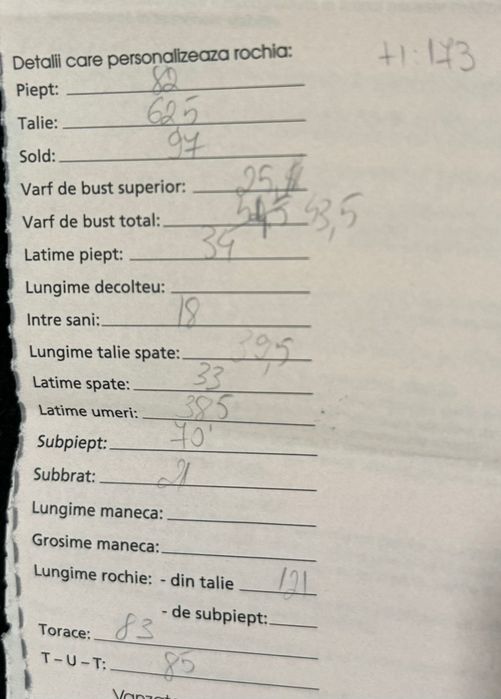 Detalii care personalizeaza rochia: +1: 173
Piept: 82
Talie: 625
Sold: 97
Varf de bust superior: 25,
Varf de bust total: 53,5
Latime piept: 34
Lungime decolteu:
Intre sani: 18
Lungime talie spate: 39,5
Latime spate: 33
Latime umeri: 385
Subpiept: 70
Subbrat: 21
Lungime maneca:
Grosime maneca:
Lungime rochie: - din talie 121
- de subpiept:
Torace: 83
T - U - T: 85